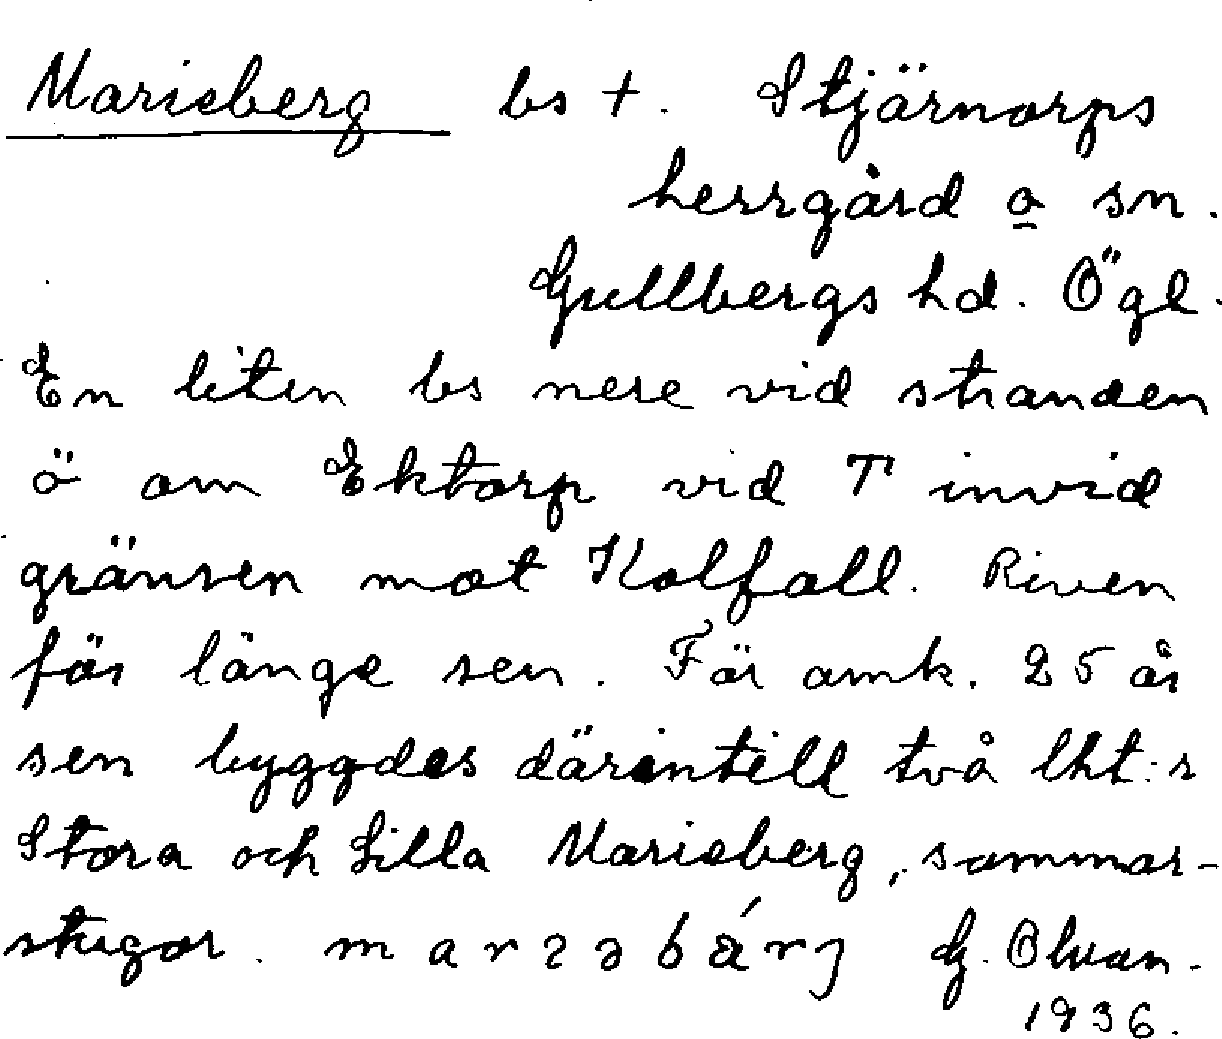 Marieberg bs +. Stjärnorps
herrgård o sn.
Gullbergs hd. Ögl.
En liten bs nere vid stranden
ö om Ektorp vid T invid
gränsen mot Kolfall. Riven
för länge sen. För omk. 25 år
sen byggdes därintill två lht:r
Stora och Lilla Marieberg, sommar-
stugor. G.
1936.